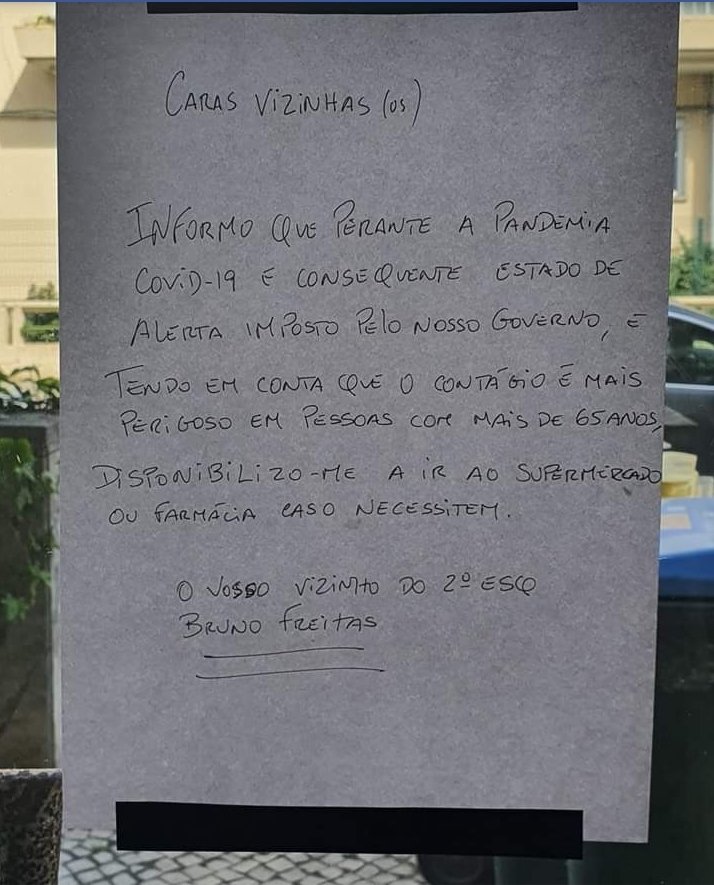 CARAS VIZINHAS (OS)
INFORMO QUE PERANTE A PANDEMIA
COVID-19 E CONSEQUENTE ESTADO DE
ALERTA IMPOSTO PELO NOSSO GOVERNO, E
TENDO EM CONTA QUE O CONTÁGIO É MAIS
PERIGOSO EM PESSOAS COM MAIS DE 65 ANOS,
DISPONIBILIZO-ME A IR AO SUPERMERCADO
OU FARMÁCIA CASO NECESSITEM.
O VOSSO VIZINHO DO 2º ESQ
BRUNO FREITAS